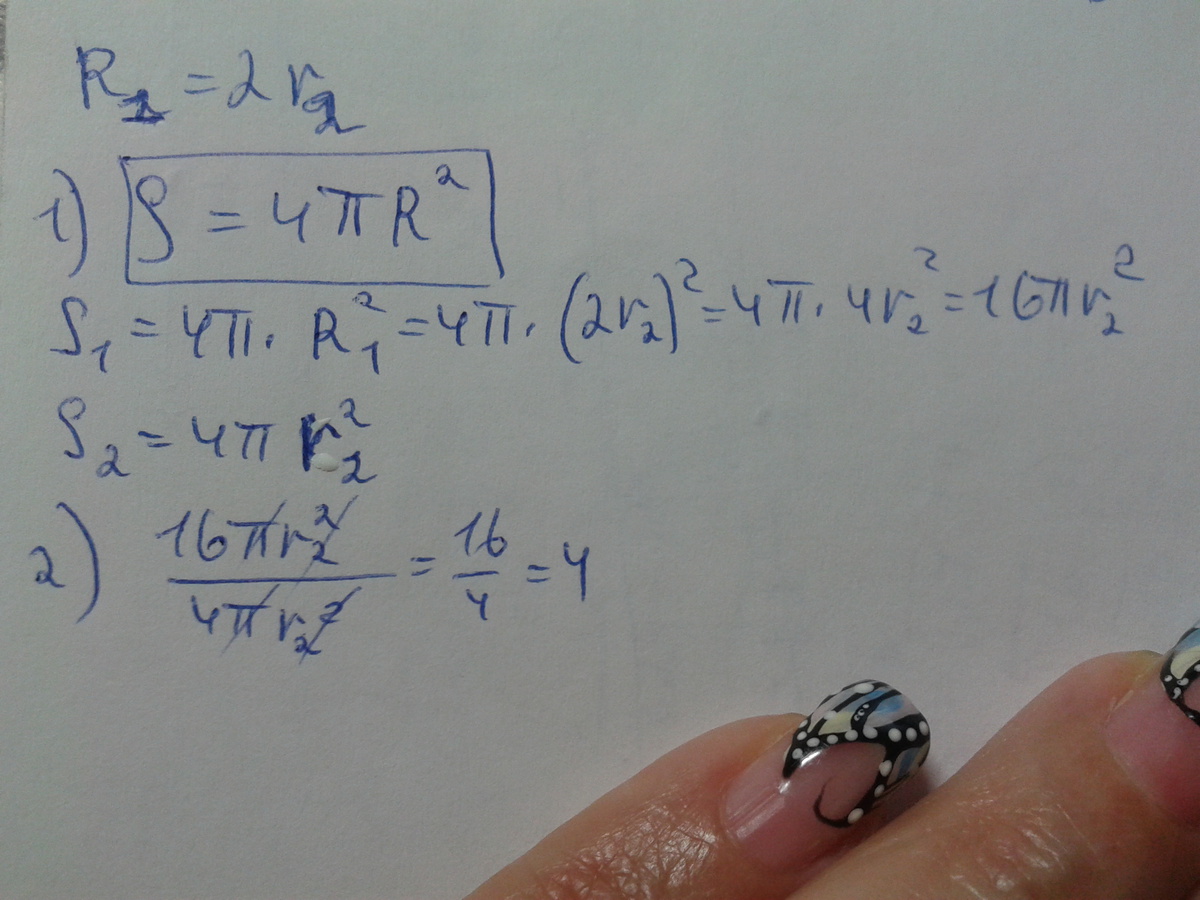 R₁ = 2r₂
1) S = 4πR²
S₁ = 4π · R₁² = 4π · (2r₂)² = 4π · 4r₂² = 16πr₂²
S₂ = 4π r₂²
2) 16πr₂² / 4πr₂² = 16/4 = 4